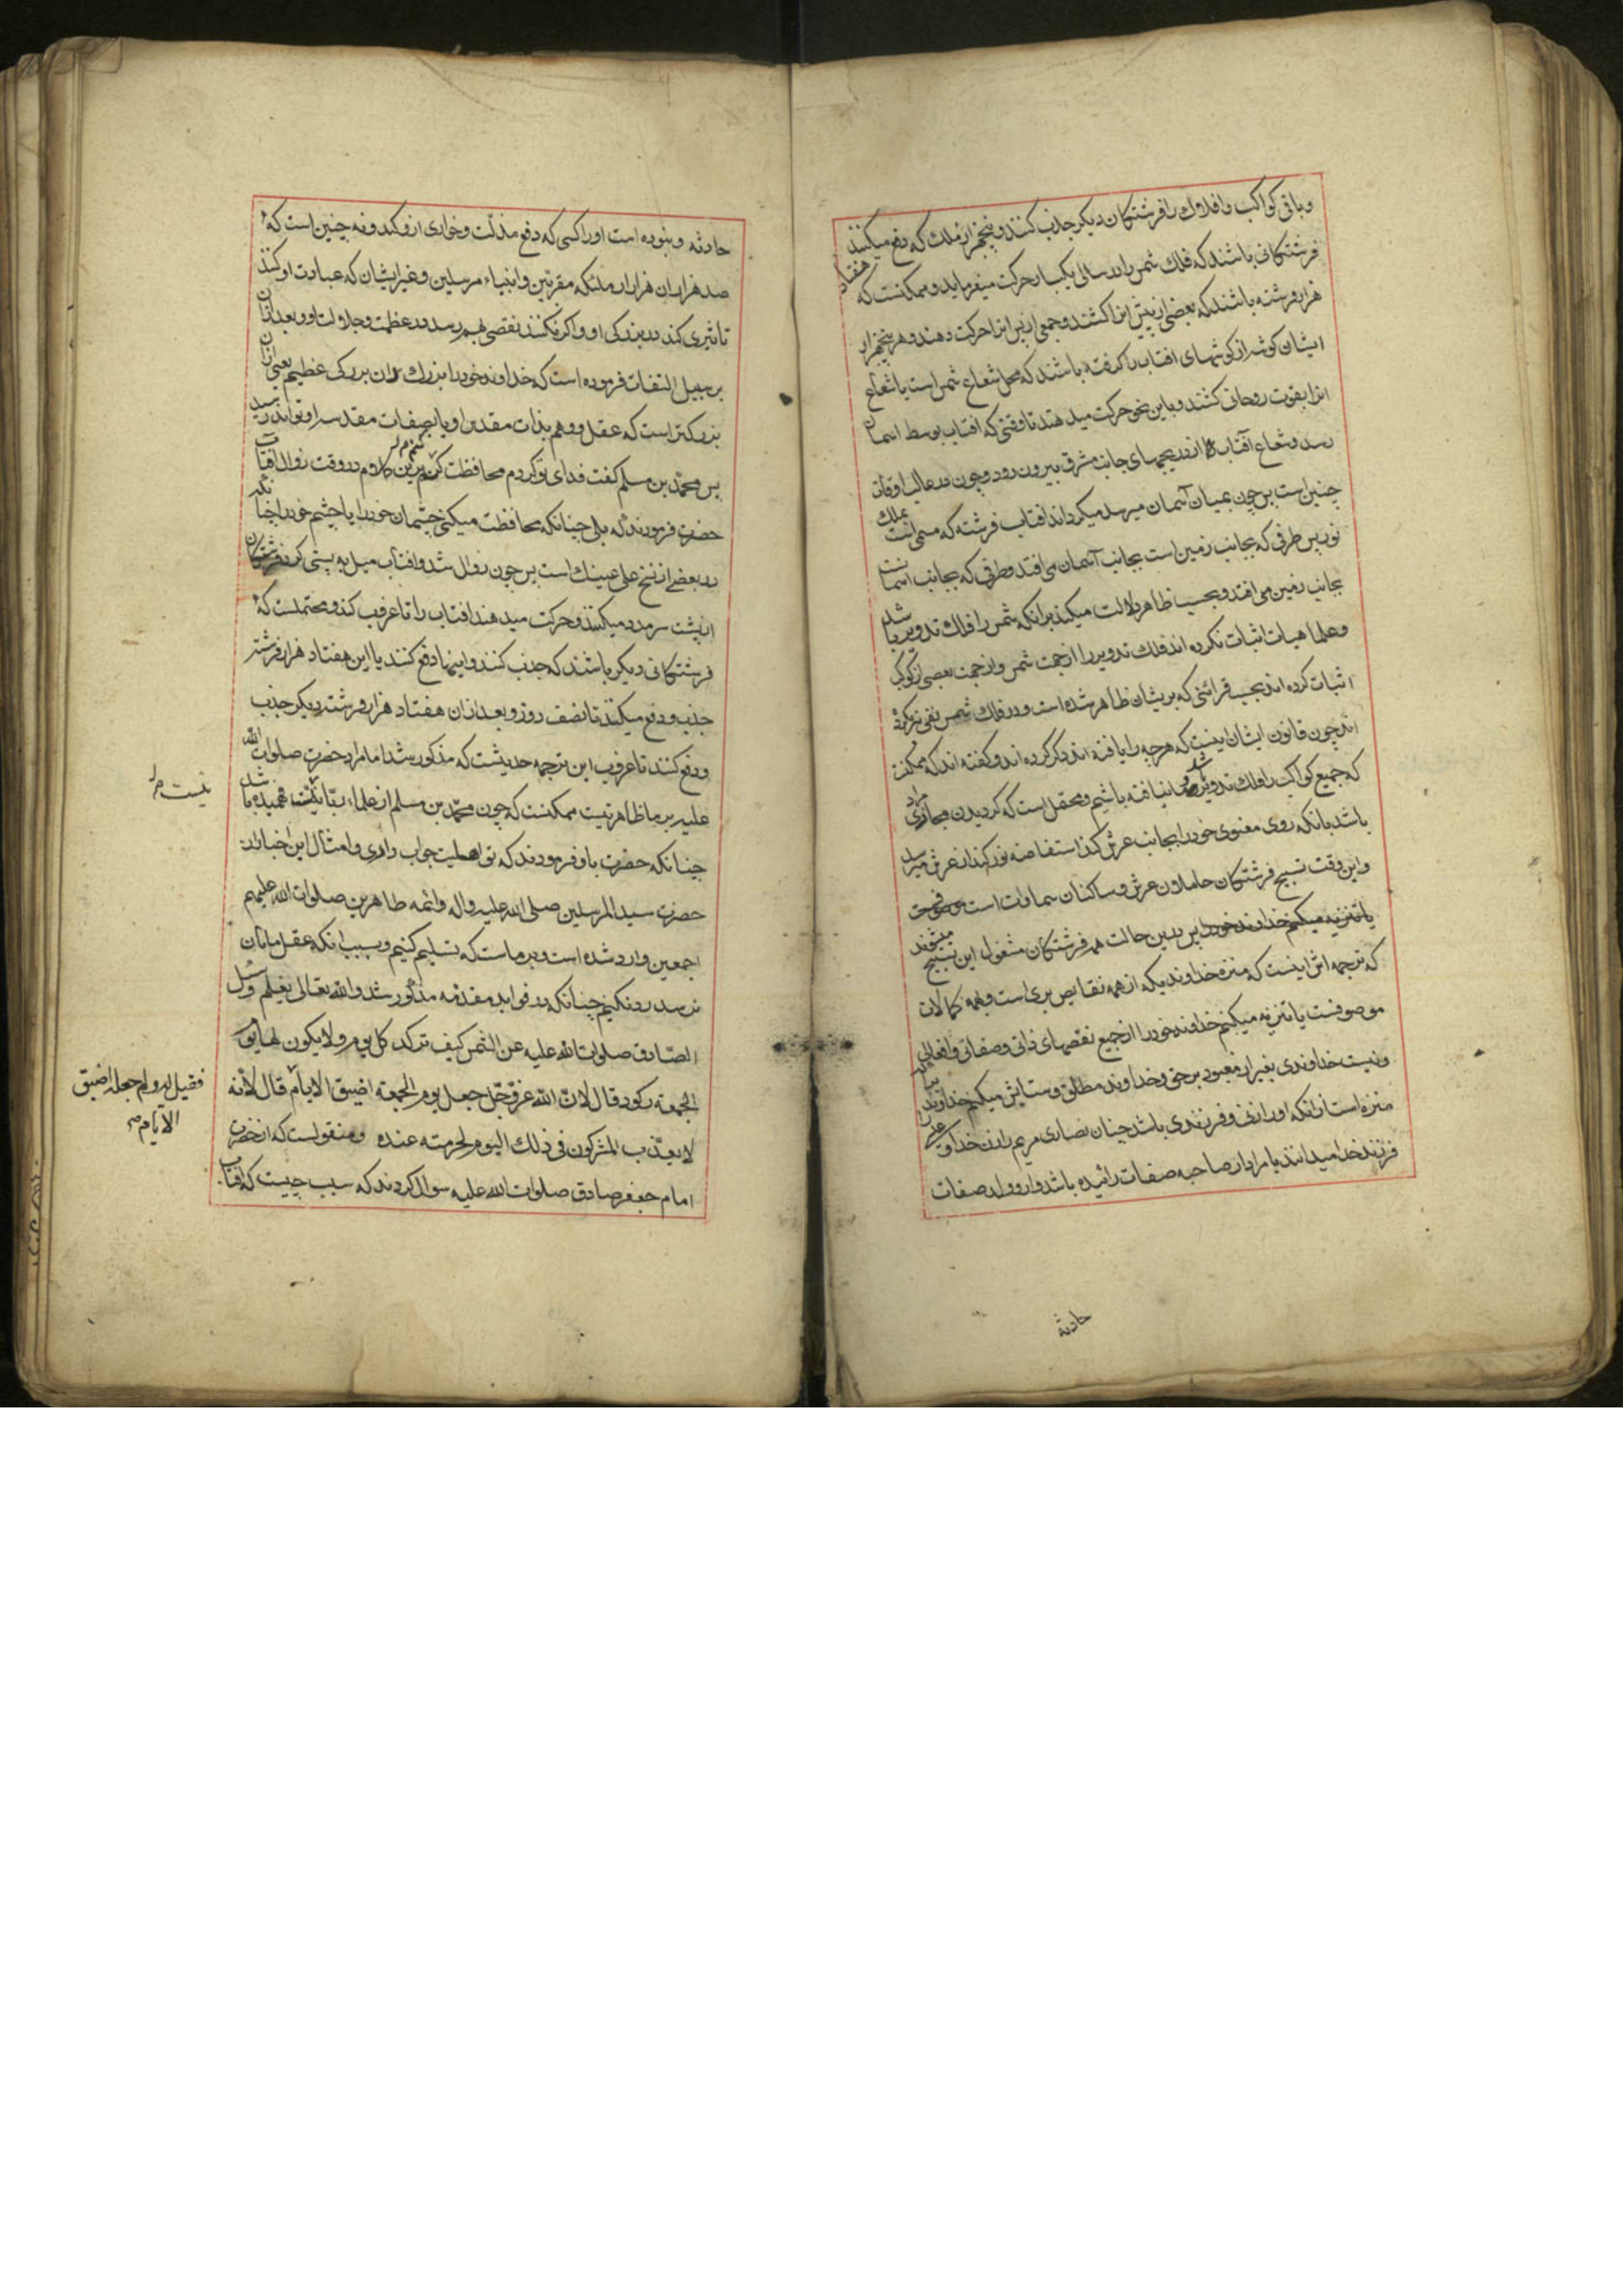 و باقی کواکب و افلاک را فرشتکان دیکر جذب کنند و پنجهزار ملک که دفع میکنند
فرشتکانی باشند که فلک شمس را در سالی یکبار حرکت میفرمایند و ممکنست که هفتاد
هزار فرشته باشند که بعضی از پیش انرا کشند و جمعی از پس انرا حرکت دهند و هر پنجهزار
ایشان کوشه از کوشهای افتاب را کرفته باشند که محل شعاع شمس است یا شعاع
انرا بقوت روحانی کشند و باین نحو حرکت میدهند تا وقتی که افتاب بوسط اسمان
رسد و شعاع آفتاب از دریچهای جانب مشرق بیرون رود و چون در غالب اوقات
چنین است پس چون بمیان آسمان میرسد میکرداند افتاب فرشته که مسمی است بملک
نور پس طرفی که بجانب زمین است بجانب آسمان می افتد و طرفی که بجانب اسمانست
بجانب زمین می افتد و بحسب ظاهر دلالت میکند برانکه شمس را فلک تدویر باشد
و علما هیات اثبات نکرده اند فلک تدویر را از جهت شمس و از جهت بعضی از کواکب
اثبات کرده اند بحسب قرائنی که بریشان ظاهر شده است و در فلک شمس نفی نیز نکرده
اند چون قانون ایشان اینست که هرچه را یافته اند ذکر کرده اند و کفته اند که ممکنست
که جمیع کواکب را فلک تدویر باشد و ما نیافته باشیم و محتمل است که کردیدن مجازی مراد
باشد بانکه روی معنوی خود را بجانب عرش کند استفاضه نور کند از عرش میرسد
و این وقت تسبیح فرشتکان حاملان عرش و ساکنان سماوات است
یا تنزیه میکنم خداوند خود را پس درین حالت همه فرشتکان مشغول این تسبیح میشوند
که ترجمه اش اینست که منزه خداوندیکه از همه نقایص بری است و بهمه کمالات
موصوفست یا تنزیه میکنم خداوند خود را از جمیع نقصهای ذاتی و صفاتی و افعالی
و نیست خداوندی بغیر از معبود برحق و خداوند مطلق و ستایش میکنم خداوندیرا که
منزه است ازانکه او را زنی و فرزندی باشد چنان نصاری مریم را زن خدا و عیسی را
فرزند خدا میدانند یا مراد از صاحبه صفات زائیده باشد و از ولد صفات
حادثه
حادثه و نبوده است او را کسی که دفع مذلت و خواری ازو کند و نه چنین است که
صد هزاران هزار از ملئکه مقربین و انبیاء مرسلین و غیر ایشان که عبادت او کنند
تاثیری کند در بزرکی او و اکر نکنند نقصی بهم رسد در عظمت و جلالت او و بعد ازان
بر سبیل التفات فرموده است که خداوند خود را بزرک دان بزرکی عظیم یعنی ازان
بزرکتر است که عقل و وهم بذات مقدس او یا بصفات مقدسه او تواند رسید
پس محمد بن مسلم کفت فدای تو کردم محافظت کنم برین کلام در وقت زوال افتاب
حضرت فرمودند که بلی چنانکه محافظت میکنی چشمان خود را یا چشم خود را چنانکه
در بعضی از نسخ علی عینیک است پس چون زوال شد و افتاب میل به پستی کرد فرشتکان
از پشت سر مدد میکنند و حرکت میدهند افتاب را تا غروب کند و محتملست که
فرشتکانی دیکر باشند که جذب کنند و اینها دفع کنند یا این هفتاد هزار فرشته
جذب و دفع میکنند تا نصف روز و بعد ازان هفتاد هزار فرشته دیکر جذب
و دفع کنند تا غروب این ترجمه حدیثست که مذکور شد اما مراد حضرت صلوات الله
علیه بر ما ظاهر نیست ممکنست که چون محمد بن مسلم از علماء ربانیست فهمیده باشد
نیست
چنانکه حضرت باو فرمودند که تو اهلیت جواب داری و امثال این خبار از
حضرت سید المرسلین صلی الله علیه و اله و ائمه طاهرین صلوات الله علیهم
اجمعین وارد شده است و بر ماست که تسلیم کنیم و بسبب انکه عقل ما بان
نرسد رد نکنیم چنانکه در فواید مقدمه مذکور شد والله تعالی یعلم وسئل
الصادق صلوات الله علیه عن الشمس کیف ترکد کل یوم ولا یکون لها یوم
الجمعة رکود قال لان الله عز و جل جعل یوم الجمعة اضیق الایام قال لانه
فقیل له ولم جعله اضیق
الایام
لا یعذب المشرکون فی ذلک الیوم لحرمته عنده و منقولست که از حضرت
امام جعفر صادق صلوات الله علیه سوال کردند که سبب چیست که افتاب